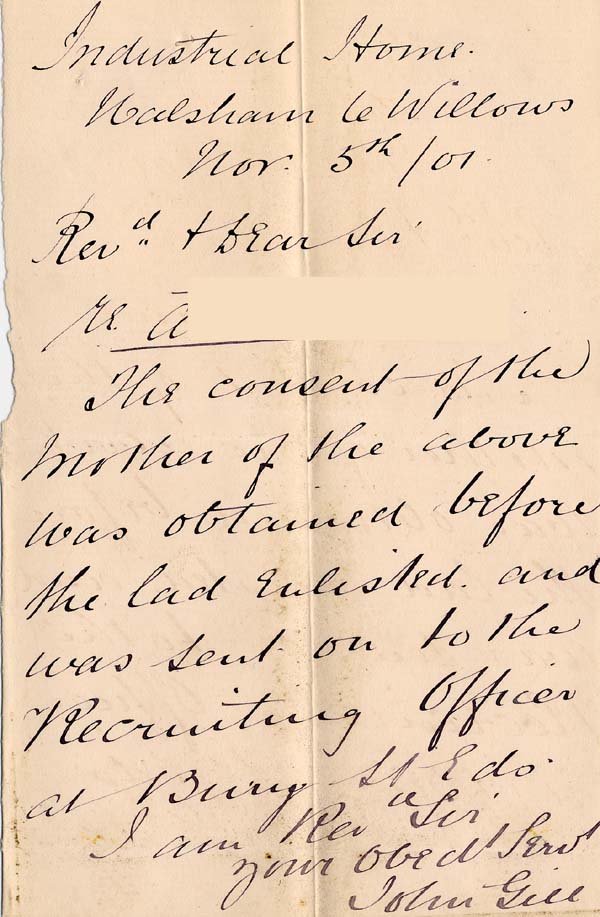 Industrial Home.
Walsham le Willows
Nov. 5th /01.
Revd. & Dear Sir
re. A
The consent of the
Mother of the above
was obtained before
the lad enlisted. and
was sent on to the
Recruiting Officer
at Bury St Eds.
I am Revd Sir
your Obedt Servt
John Gill